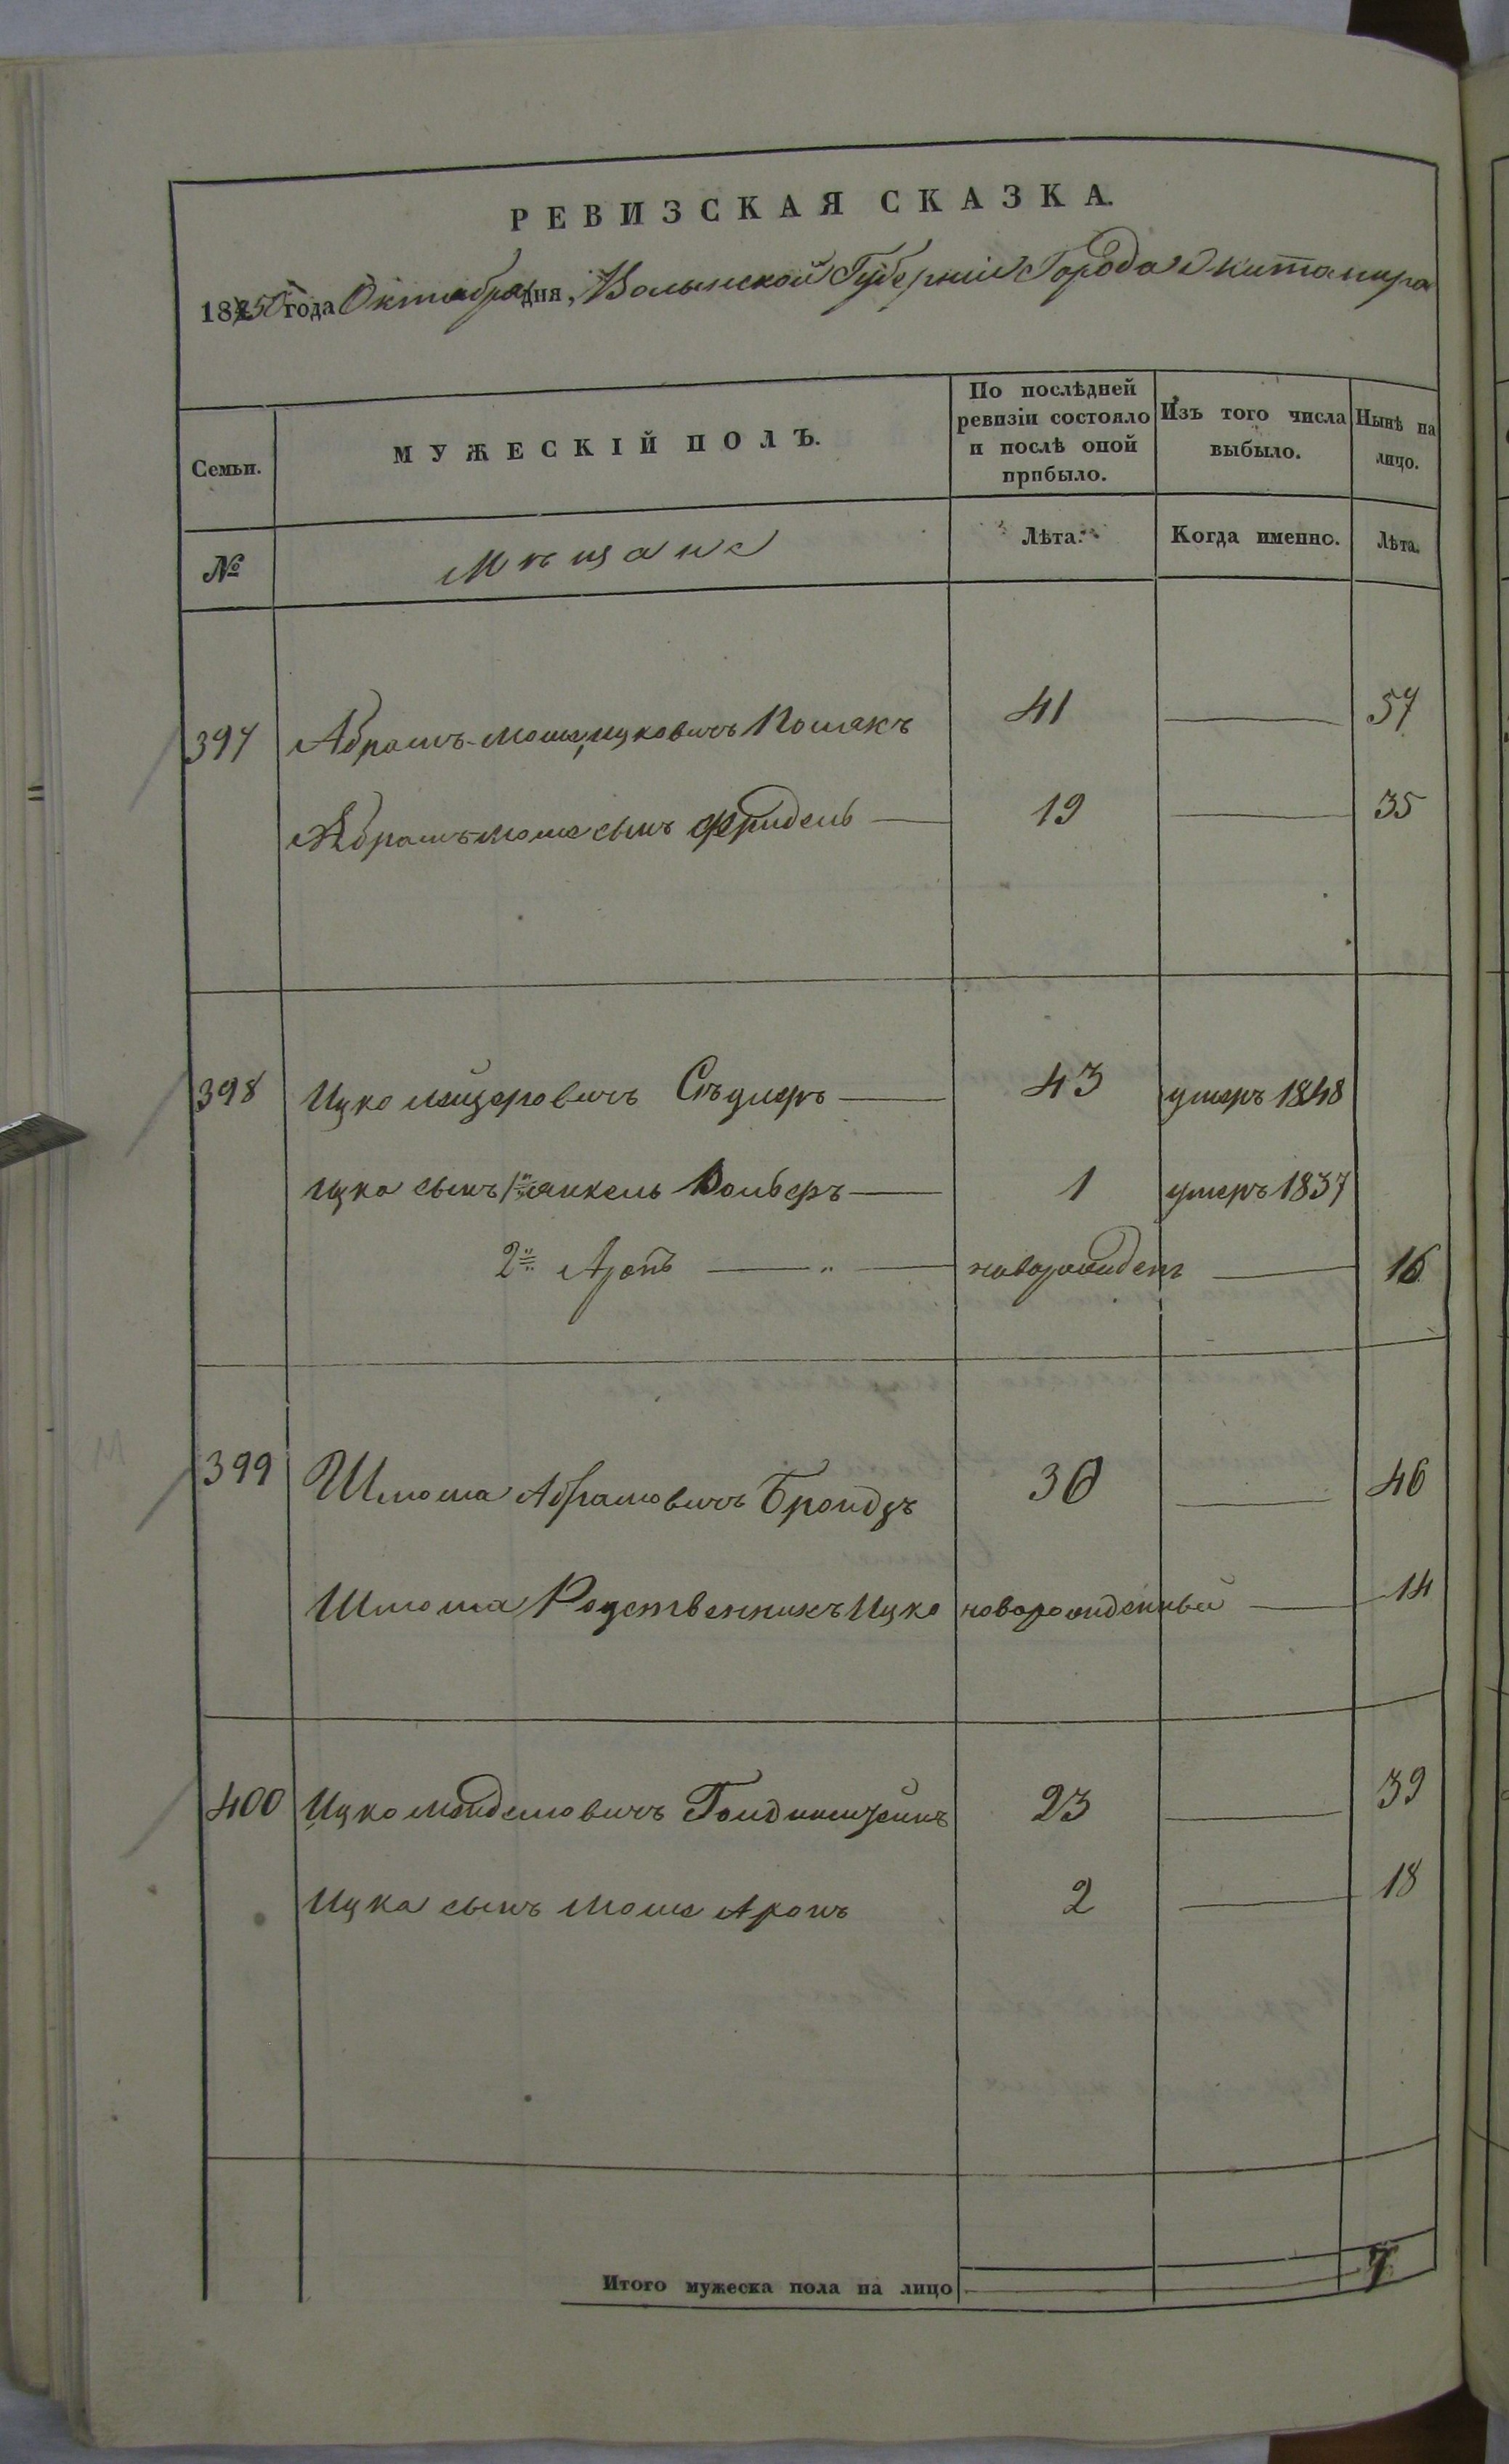 РЕВИЗСКАЯ СКАЗКА.
1850 года Октября дня, Волынской Губернiи Города Житомира
Семьи.
МУЖЕСКIЙ ПОЛЪ.
По послѣдней ревизiи состояло и послѣ оной прибыло.
Изъ того числа выбыло.
Нынѣ на лицо.
№
Мѣщане
Лѣта.
Когда именно.
Лѣта.
397 Абрамъ-Мошко Ицковичъ Полякъ 41 57
Абрамъ Мошка сынъ Фридель 19 35
398 Ицко Лейзеровичъ 43 умеръ 1848
Ицка сынъ 1й Янкель Вольфъ 1 умеръ 1837
2й Аронъ " новорожденъ 16
399 Шлома Абрамовичъ Бронда 30 46
Шлома Родственникъ Ицко новорожденный 14
400 Ицко Мойдемовичъ 23 39
Ицка сынъ Мошко Аронъ 2 18
Итого мужеска пола на лицо 7